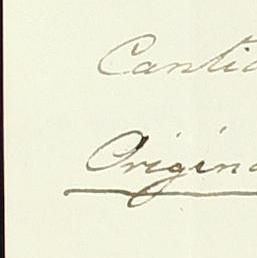 Cantic
Origina